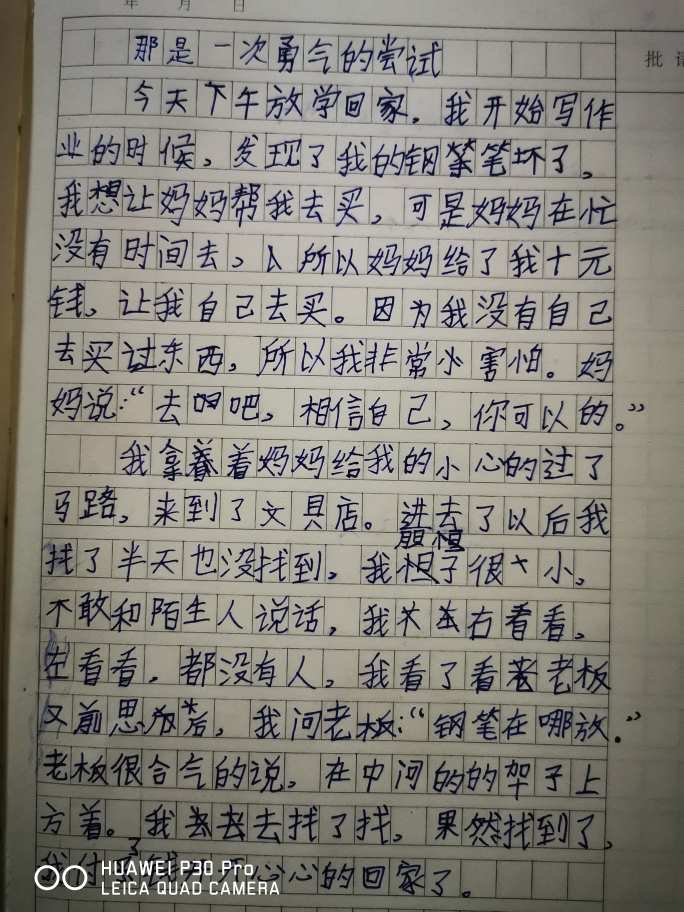 年 月 日
批语
那是一次勇气的尝试
今天下午放学回家。我开始写作
业的时候，发现了我的钢笔坏了，
我想让妈妈帮我去买，可是妈妈在忙
没有时间去，所以妈妈给了我十元
钱，让我自己去买。因为我没有自己
去买过东西，所以我非常害怕。妈
妈说：“去吧，相信自己，你可以的。”
我拿着妈妈给我的小心的过了
马路，来到了文具店。进去了以后我
找了半天也没找到，我胆子很小，
不敢和陌生人说话，我右看看，
左看看，都没有人，我看了看老板
又前思后，我问老板：“钢笔在哪放.”
老板很合气的说，在中河的的架子上
方着。我去找了找，果然找到了，
我付了钱开心心的回家了。
HUAWEI P30 Pro
LEICA QUAD CAMERA